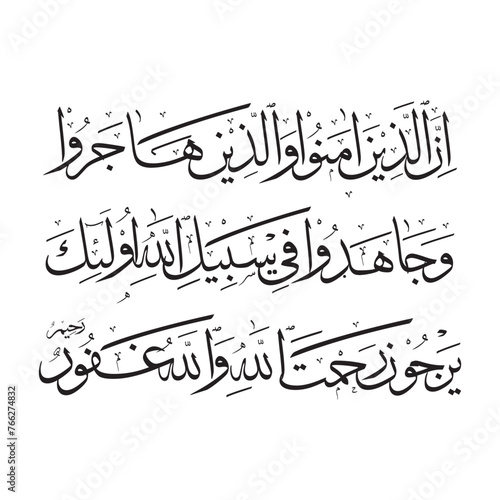 اِنَّ الَّذِيْنَ اٰمَنُوْا وَالَّذِيْنَ هَاجَرُوْا
وَجَاهَدُوْا فِيْ سَبِيْلِ اللّٰهِ اُولٰۤئِكَ
يَرْجُوْنَ رَحْمَتَ اللّٰهِ وَاللّٰهُ غَفُوْرٌ رَحِيْمٌ
Adobe Stock | #766274832